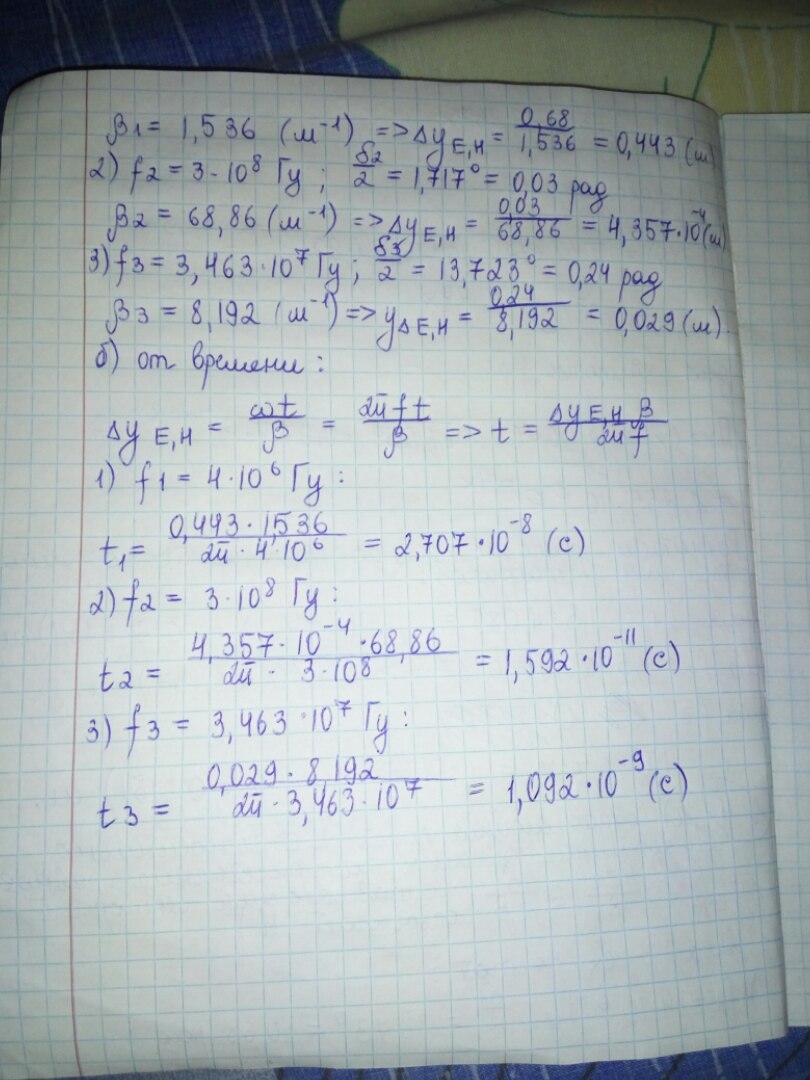 β1 = 1,536 (м⁻¹) => Δy E,H = 0,68/1,536 = 0,443 (м)
2) f2 = 3·10⁸ Гц ; δ2/2 = 1,717° = 0,03 рад
β2 = 68,86 (м⁻¹) => Δy E,H = 0,03/68,86 = 4,357·10⁻⁴ (м)
3) f3 = 3,463·10⁷ Гц ; δ3/2 = 13,723° = 0,24 рад
β3 = 8,192 (м⁻¹) => yΔ E,H = 0,24/8,192 = 0,029 (м).
б) от времени :
Δy E,H = ωt/β = 2π f t/β => t = Δy E,H β/2π f
1) f1 = 4·10⁶ Гц :
t1 = 0,443·1,536/2π·4·10⁶ = 2,707·10⁻⁸ (с)
2) f2 = 3·10⁸ Гц :
t2 = 4,357·10⁻⁴·68,86/2π·3·10⁸ = 1,592·10⁻¹¹ (с)
3) f3 = 3,463·10⁷ Гц :
t3 = 0,029·8,192/2π·3,463·10⁷ = 1,092·10⁻⁹ (с)